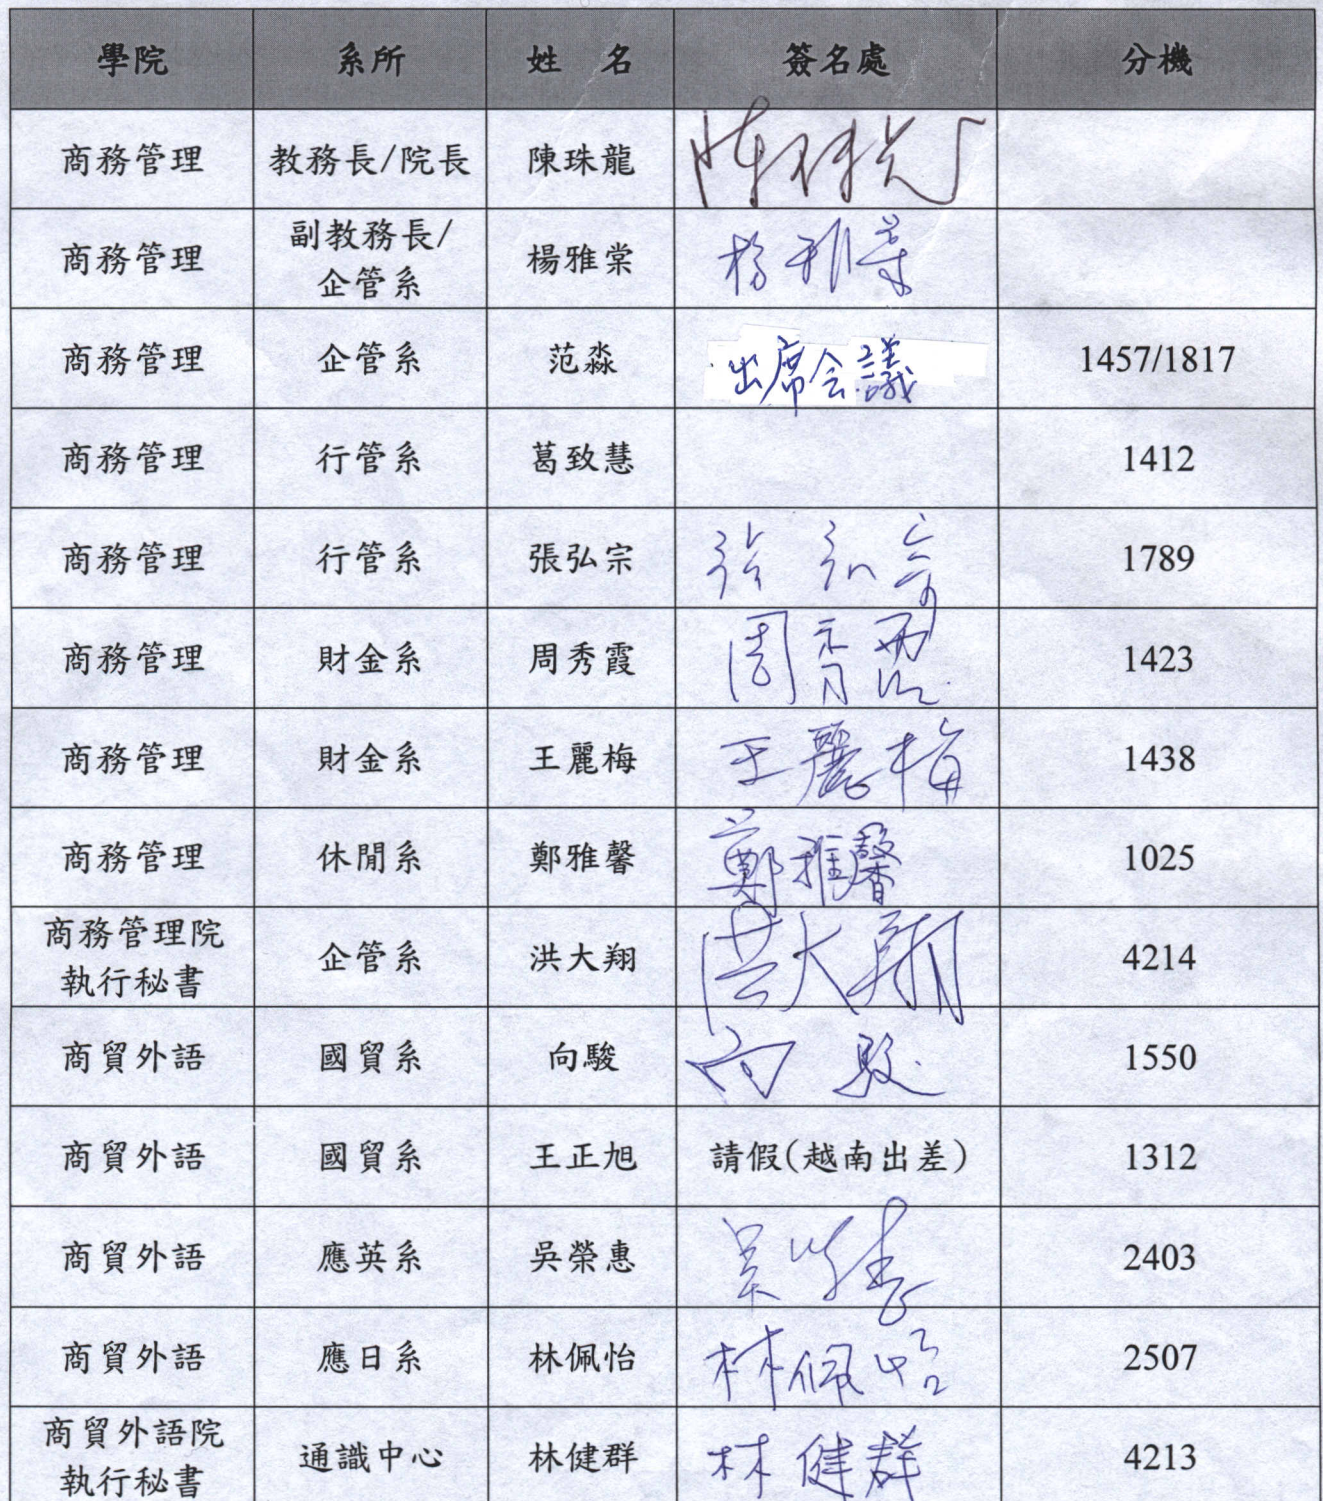 學院 系所 姓 名 簽名處 分機
商務管理 教務長/院長 陳珠龍
商務管理 副教務長/
企管系 楊雅棠 楊雅棠
商務管理 企管系 范淼 出席会議 1457/1817
商務管理 行管系 葛致慧 1412
商務管理 行管系 張弘宗 1789
商務管理 財金系 周秀霞 周秀霞 1423
商務管理 財金系 王麗梅 王麗梅 1438
商務管理 休閒系 鄭雅馨 鄭雅馨 1025
商務管理院
執行秘書 企管系 洪大翔 洪大翔 4214
商貿外語 國貿系 向駿 向駿 1550
商貿外語 國貿系 王正旭 請假(越南出差) 1312
商貿外語 應英系 吳榮惠 2403
商貿外語 應日系 林佩怡 林佩怡 2507
商貿外語院
執行秘書 通識中心 林健群 林健群 4213